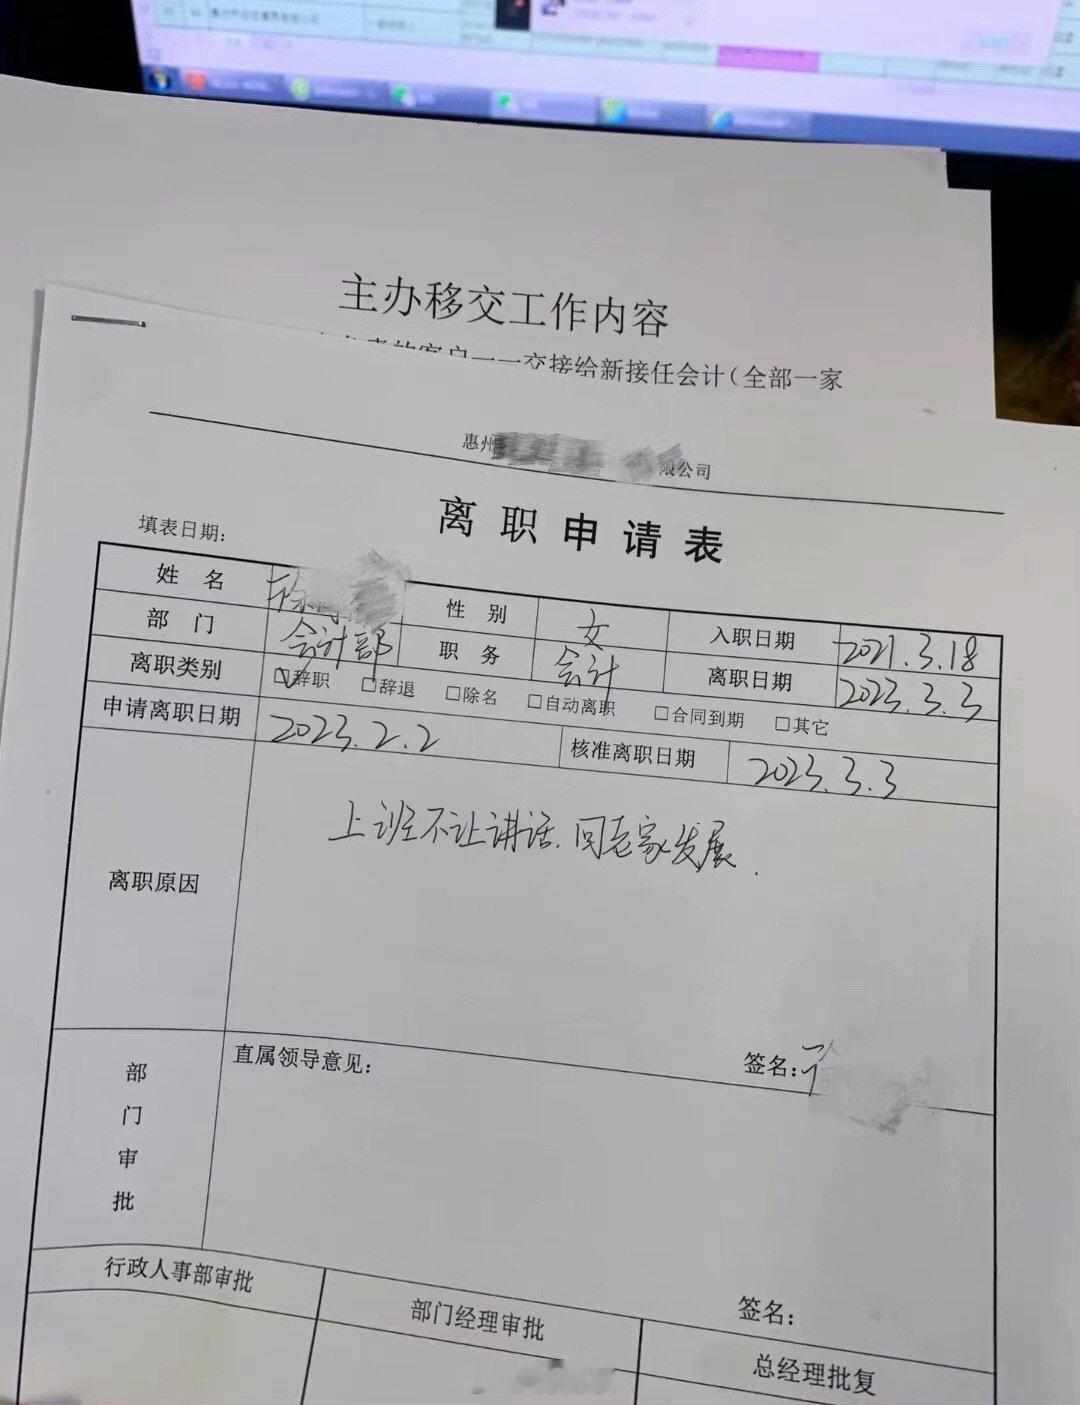 主办移交工作内容
客户一一交接给新接任会计（全部一家
惠州 限公司
离职申请表
填表日期：
姓 名 徐 性 别 女 入职日期 2021.3.18
部 门 会计部 职 务 会计 离职日期 2023.3.3
离职类别 ☑辞职 □辞退 □除名 □自动离职 □合同到期 □其它
申请离职日期 2023.2.2 核准离职日期 2023.3.3
离职原因 上班不让讲话.回老家发展.
签名：徐
部门审批 直属领导意见：
签名：
行政人事部审批 部门经理审批 总经理批复